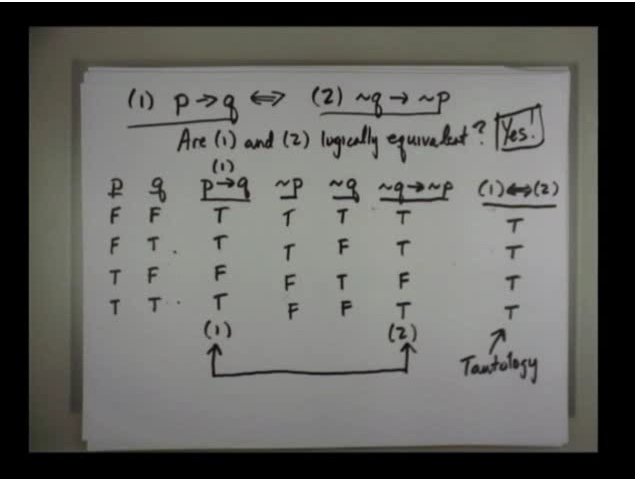 (1) p → q ⇔ (2) ~q → ~p
Are (1) and (2) logically equivalent? Yes!
(1)
p q p→q ~p ~q ~q→~p (1)⇔(2)
F F T T T T T
F T T T F T T
T F F F T F T
T T T F F T T
(1) (2)
Tautology